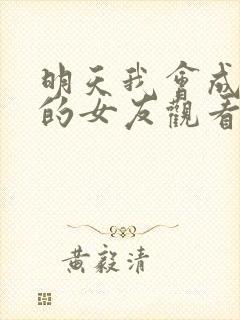 明天我會成
的女友觀看
黃毅清